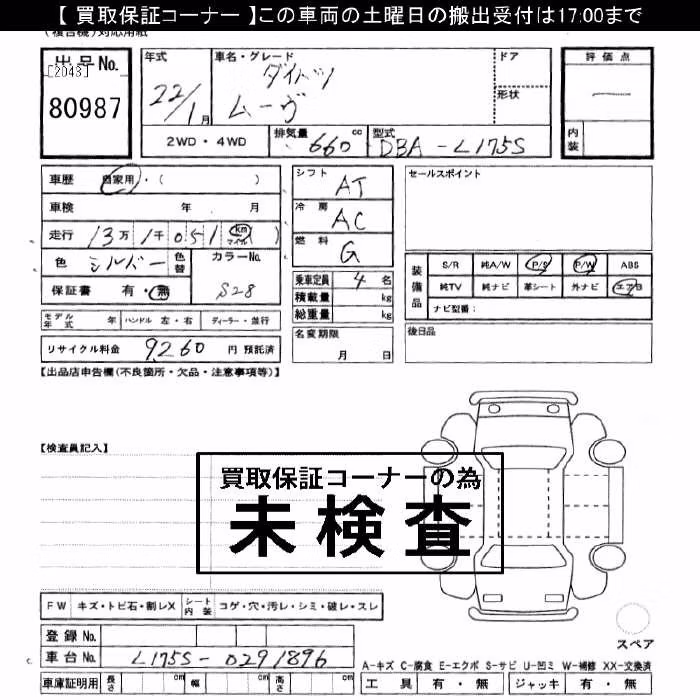 【 買取保証コーナー 】この車両の土曜日の搬出受付は17:00まで
(複合機)対応用紙
出品No.
[2043]
80987
年式
22/1月
車名・グレード
ダイハツ
ムーヴ
ドア
形状
評価点
―
内装
2WD・4WD
排気量
660 cc
型式
DBA-L175S
車歴 自家用・( )
車検 年 月
走行 13万 1千 051 (km マイル)
色 シルバー 色替 カラーNo.
S28
保証書 有・無
モデル年式 年 ハンドル 左・右 ディーラー・並行
リサイクル料金 9260 円 預託済
シフト AT
冷房 AC
燃料 G
乗車定員 4 名
積載量 kg
総重量 kg
名変期限
月 日
セールスポイント
装備品
S/R 純A/W P/S P/W ABS
純TV 純ナビ 革シート 外ナビ エアB
ナビ型番:
後日品
【出品店申告欄(不良箇所・欠品・注意事項等)】
【検査員記入】
買取保証コーナーの為
未検査
FW キズ・トビ石・割レX シート内装 コゲ・穴・汚レ・シミ・破レ・スレ
登録No.
車台No. L175S-0291896
車庫証明用 長さ cm 幅 cm 高さ cm
スペア
A-キズ C-腐食 E-エクボ S-サビ U-凹ミ W-補修 XX-交換済
工具 有・無 ジャッキ 有・無